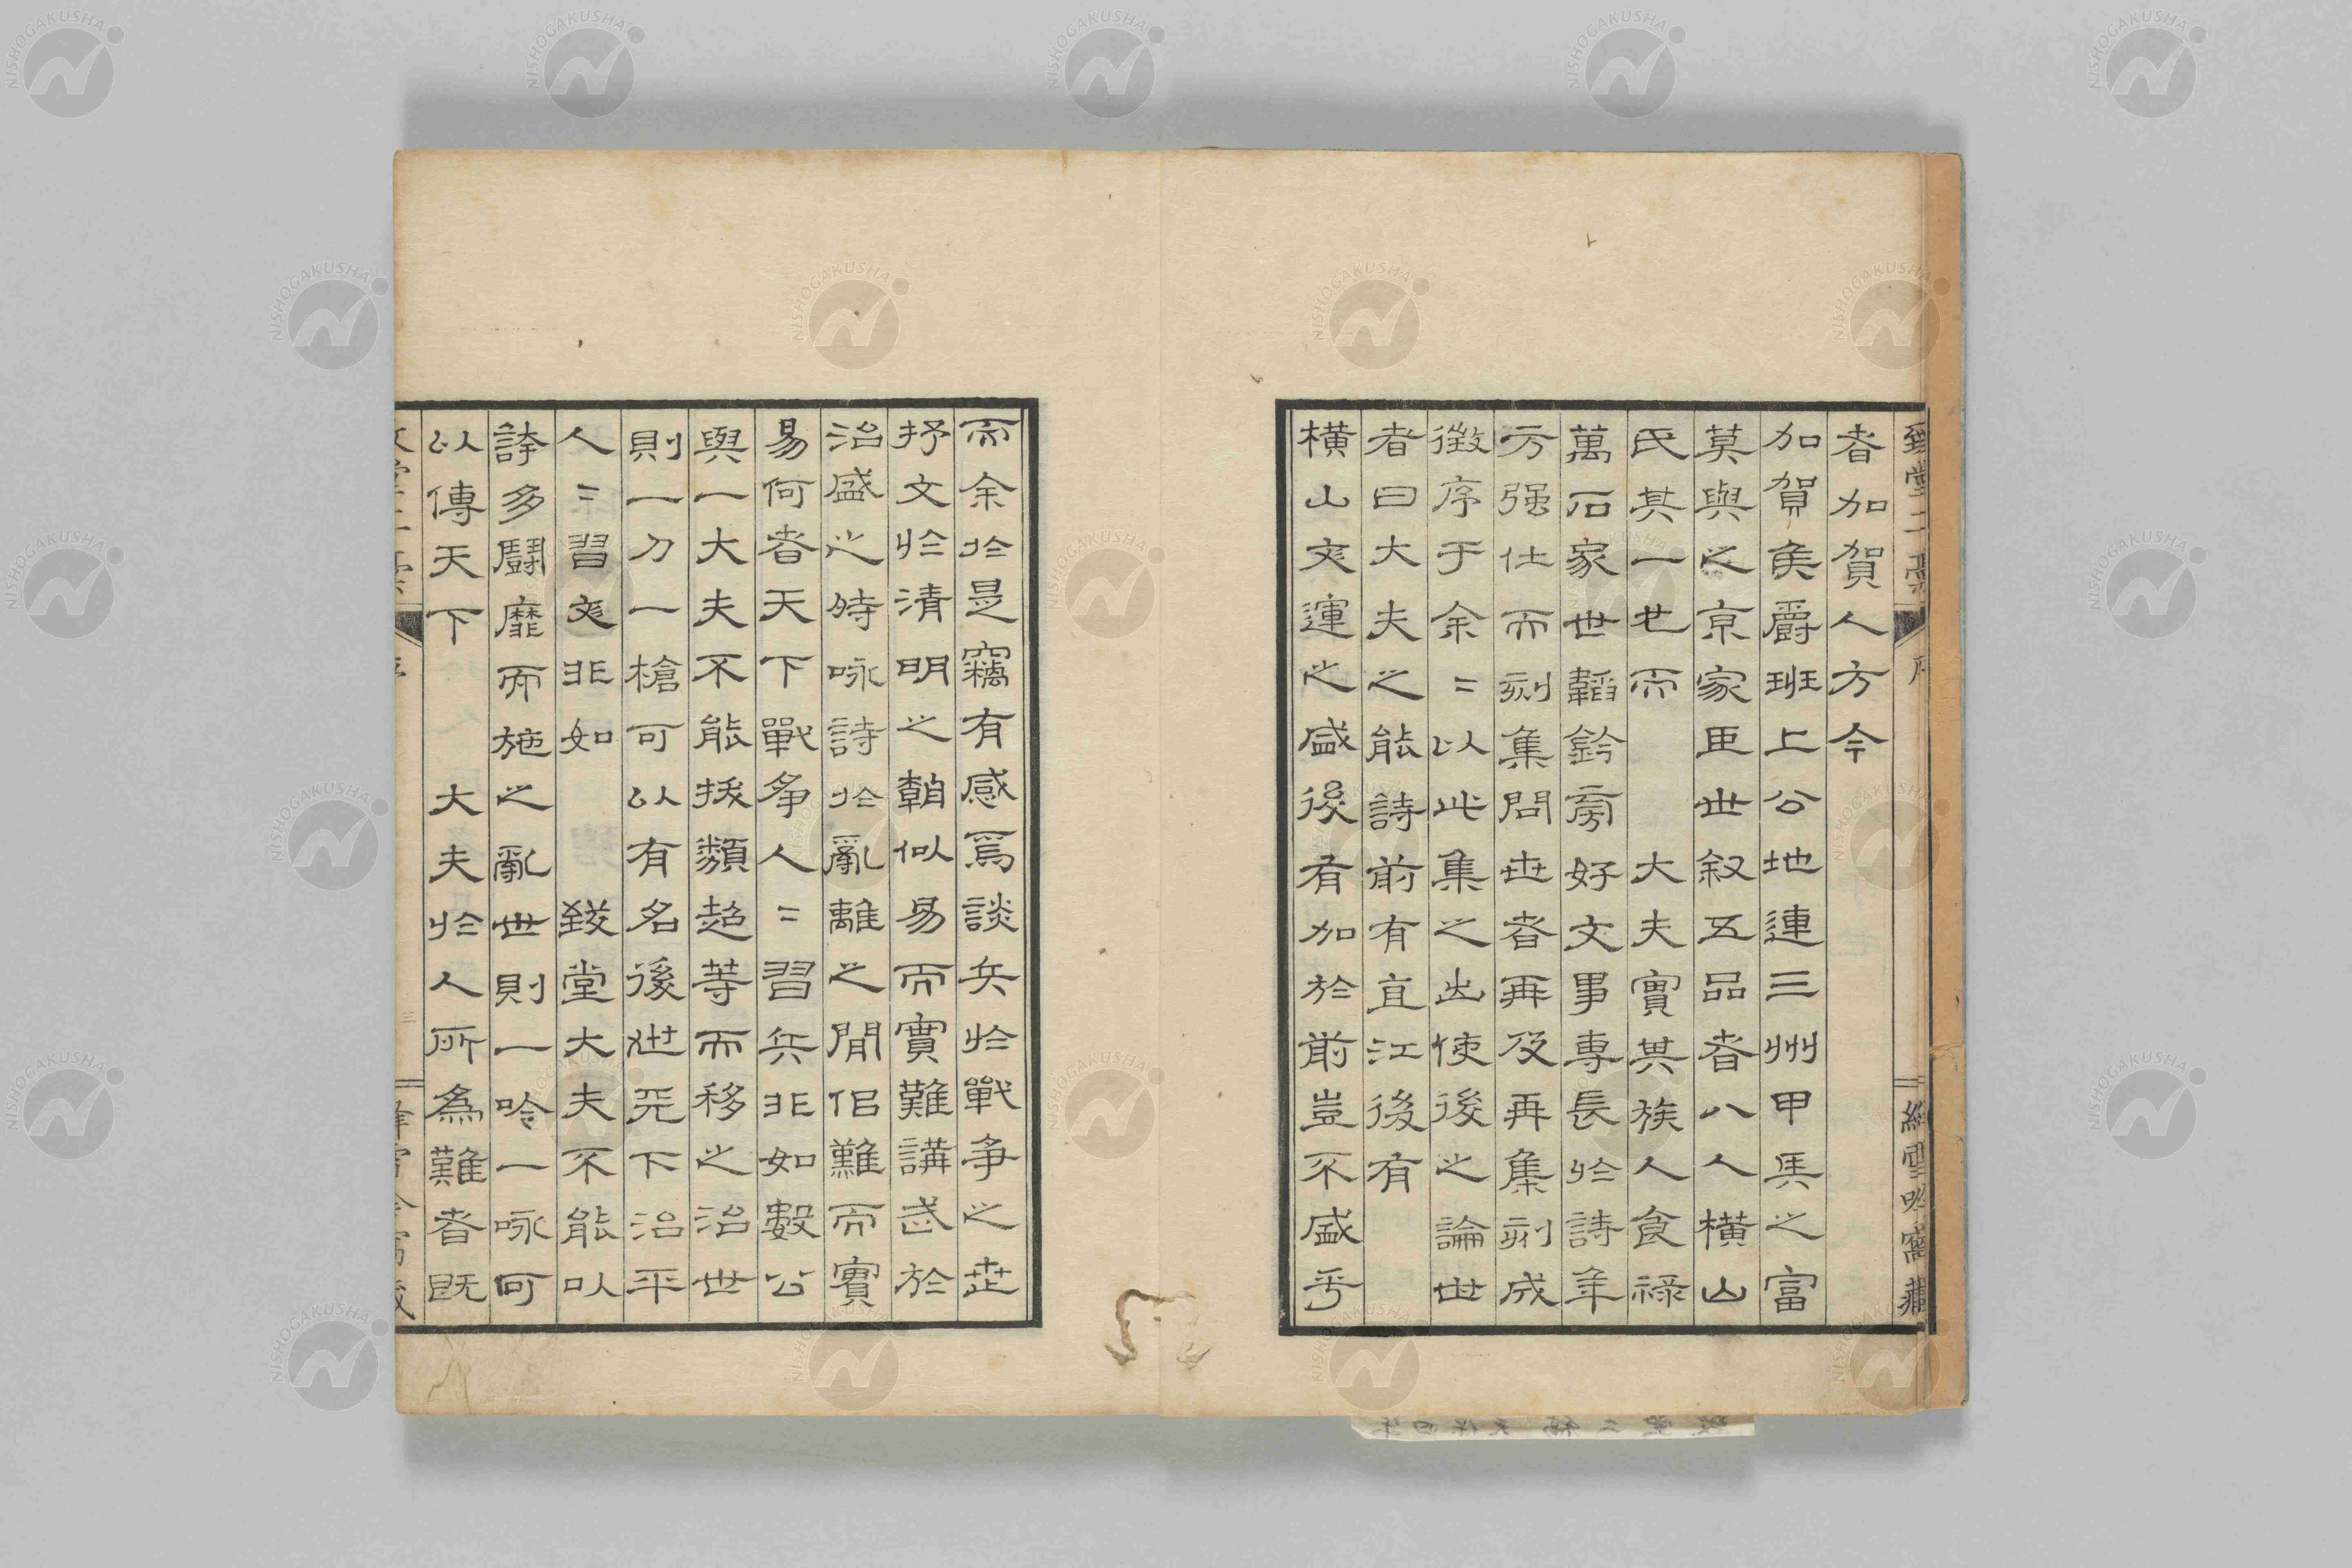 者加賀人方今
加賀矦爵班上公地連三州甲兵之富
莫與之京家臣世叙五品者八人横山
氏其一也而大夫實其族人食禄
萬石家世韜鈐而好文事專長於詩年
方强仕而刻集問世者再及再集刻成
徴序于余二以此集之出使後之論世
者曰大夫之能詩前有直江後有
横山文運之盛後有加於前豈不盛乎
而余於是竊有感焉談兵於戰争之世
抒文於清明之朝似易而實難講武於
治盛之時咏詩於亂離之間似難而實
易何者天下戰争人二習兵非如數公
與一大夫不能拔類超等而移之治世
則一刀一槍可以有名後世天下治平
人二習文非如致堂大夫不能以
詩多鬪靡而施之亂世則一唫一咏可
以傳天下大夫於人所為難者既
致堂二稾
序
絳雪唫窩藏
三
NISHOGAKUSHA